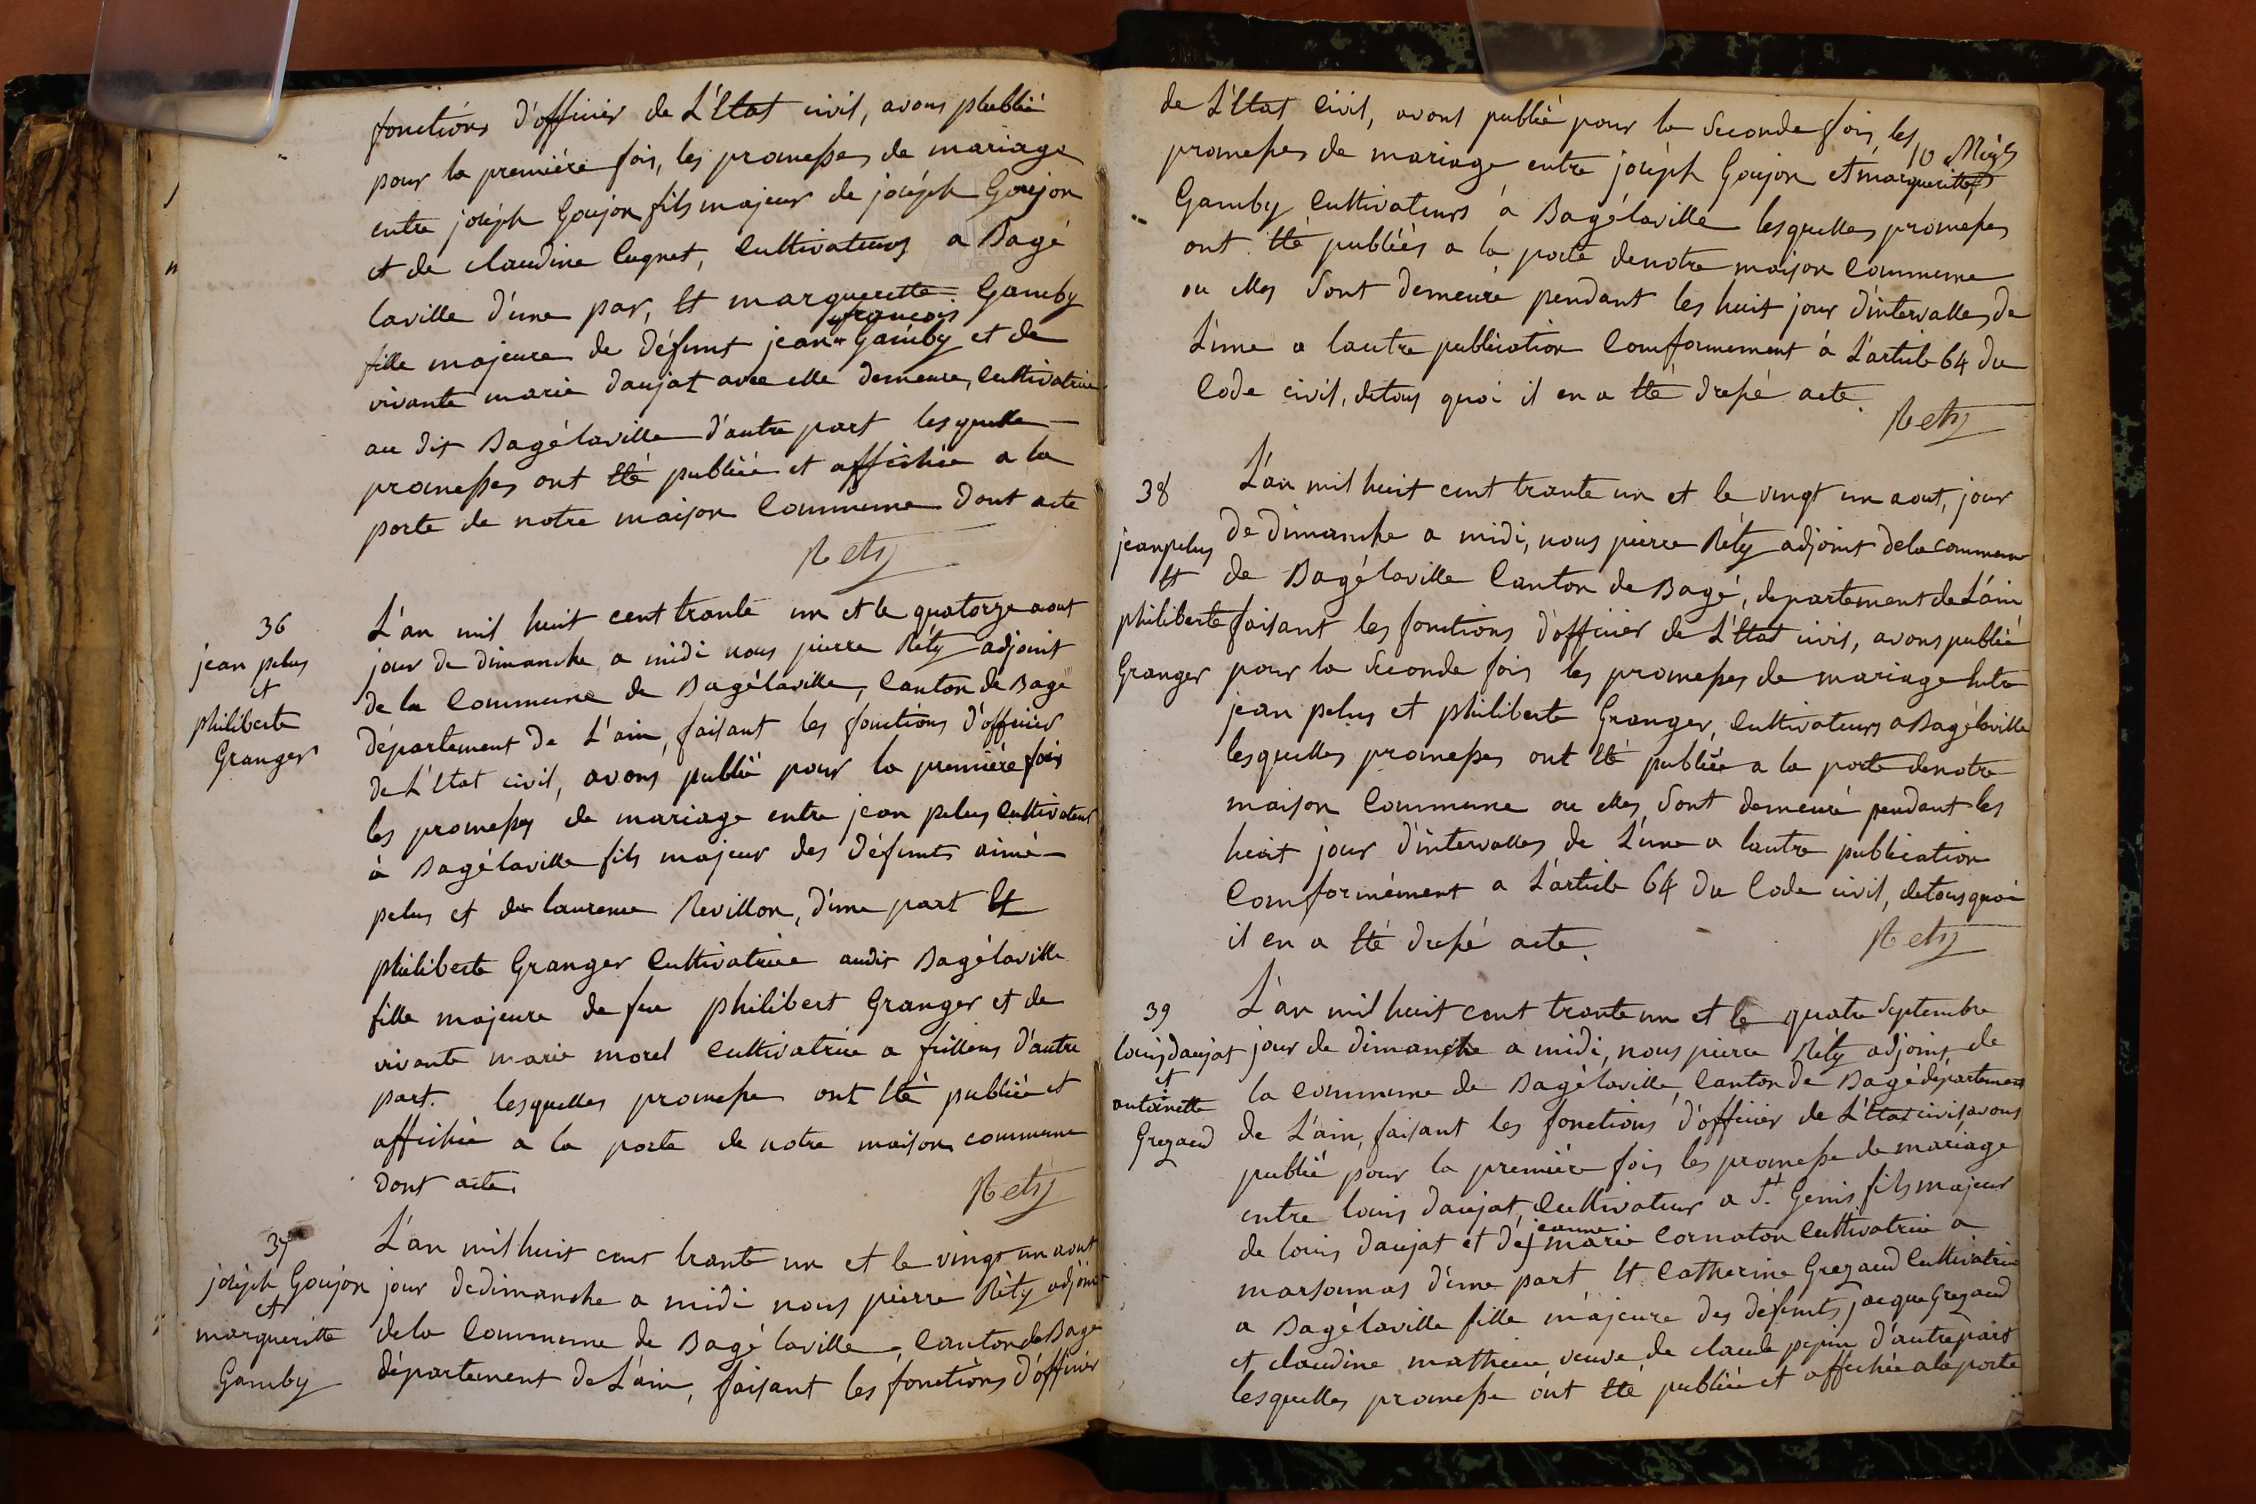 fonctions d'officier de L'Etat civil, avons plublié
pour la première fois, les promesses de mariage
entre joséph Goujon fils majeur de joséph Goujon
et de claudine Cugnet, Cultivateurs a Bagé
laville d'une par, Et marguerette Gamby
françois
fille majeure de défunt jean Gamby et de
vivante marie daujat avec elle demeure, Cultivatrice
au dit Bagélaville d'autre part lesquelle
promesses ont Eté publiée et affichée a la
porte de notre maison Commune dont acte
Réty
36
jean pelus
et
philiberte
Granger
L'an mil huit cent trante un et le quatorze aout
jour de dimanche a midi nous pierre Réty adjoint
de la Commune de Bagélaville, Canton de Bagé
département de L'ain, faisant les fonctions d'officier
de L'Etat civil, avons publié pour la première fois
les promesses de mariage entre jean pelus Cultivateur
à Bagélaville fils majeur des défunts aimé
pelus et de laurence Revillon, d'une part Et
philiberte Granger Cultivatrice audit Bagélaville
fille majeure de feu philibert Granger et de
vivante marie morel Cultivatrice a feillens d'autre
part. lesquelles promesse ont Eté publiée et
affichée a la porte de notre maison commune
dont acte.
Réty
37
joséph Goujon
et
margueritte
Gamby
L'an mil huit cent trante un et le vingt un aout
jour de dimanche a midi nous pierre Réty adjoint
de la Commune de Bagé laville, Canton de Bagé
département de L'ain, faisant les fonctions d'officier
de L'Etat Civil, avons publié pour la Seconde fois, les
promesses de mariage entre joséph Goujon et margueritte
Gamby Cultivateurs à Bagélaville lesquelles promesses
ont Eté publiées a la porte de notre maison Commune
ou elles Sont demeuré pendant les huit jour d'intervalles de
L'une a l'autre publication Comformement à L'article 64 du
Code civil, de tous quoi il en a Eté dressé acte.
Réty
38
jean pelus
Et
philiberte
Granger
L'an mil huit cent trante un et le vingt un aout, jour
de dimanche a midi, nous pierre Réty adjoint de la commune
de Bagélaville Canton de Bagé, departement de L'ain
faisant les fonctions d'officier de L'Etat civil, avons publié
pour la Seconde fois les promesses de mariage Entre
jean pelus et philiberte Granger, Cultivateurs a Bagélaville
lesquelles promesses ont Eté publiée a la porte de notre
maison Commune ou elles Sont demeuré pendant les
huit jour d'intervalles de L'une a lautre publication
Comformément a L'article 64 du Code civil, de tous quoi
il en a Eté dressé acte.
Réty
39
louis daujat
et
antoinette
Gregaud
L'an mil huit cent trante un et le quatre Septembre
jour de dimanche a midi, nous pierre Réty adjoint de
la commune de Bagélaville, Canton de Bagé département
de L'ain, faisant les fonctions d'officier de L'Etat civil, avons
publié pour la première fois les promesse de mariage
entre louis daujat, Cultivateur a St. Genis fils majeur
jeanne
de louis daujat et de marie Cornaton Cultivatrice a
marsonnas d'une part Et Catherine Gregaud Cultivatrice
a Bagélaville fille majeure des défunts jacque Gregaud
et claudine mathieu, veuve de claude pepin d'autre part
lesquelles promesse ont Eté publiée et affichée a la porte